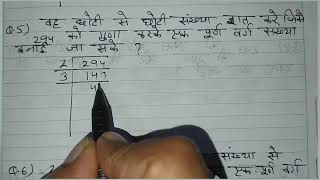 Q.5) वह छोटी से छोटी संख्या ज्ञात करे जिसे
294 को गुणा करके एक पूर्ण वर्ग संख्या
बनाई जा सके ?
2 294
3 147
4
Q.6) संख्या से
एक पूर्ण वर्ग